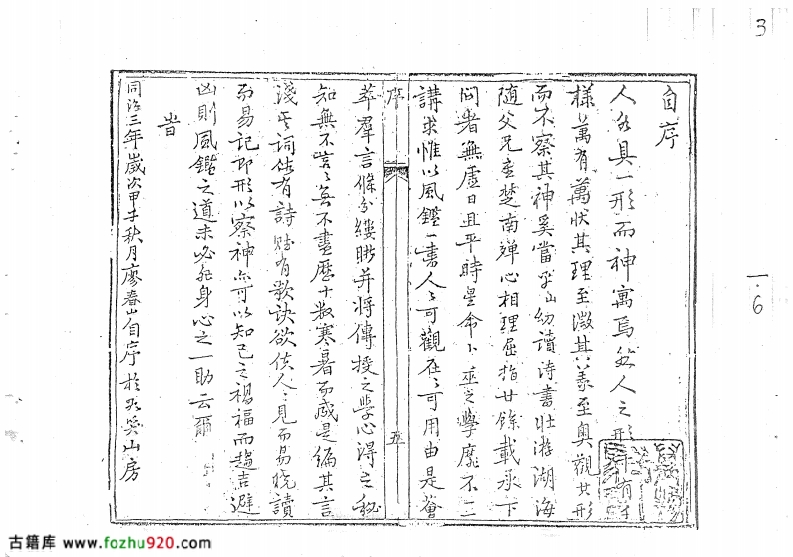 3
一·6
自序
人各具一形而神寓焉然人之形千有千
樣萬有萬状其理至微其義至奥觀其形
而不察其神奚當乎山幼讀诗書壮游湖海
随父兄至楚南殫心相理屈指廿餘載承下
问者無虚日且平時星命卜巫之學靡不一一
講求惟以風鑑一書人ミ可觀在ミ可用由是薈
序
五
萃羣言條分縷晰并将傳授之學心得之秘
知無不言ミ無不盡歷十数寒暑而成是编其言
淺其词佐有詩賦有歌訣欲使人ミ見而易晓讀
而易記即形以察神亦可以知己之禍福而趨吉避
凶則風鑑之道未必非身心之一助云爾
旹
同治三年歲次甲子秋月廖春山自序於 山房
古籍库 www.fozhu920.com